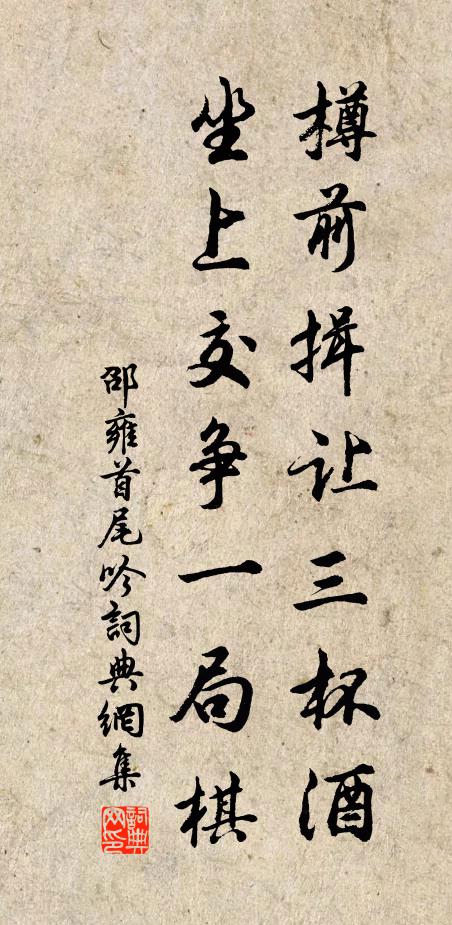 樽前揖让三杯酒
坐上交争一局棋
邵雍首尾吟詞典網集
詞典網印